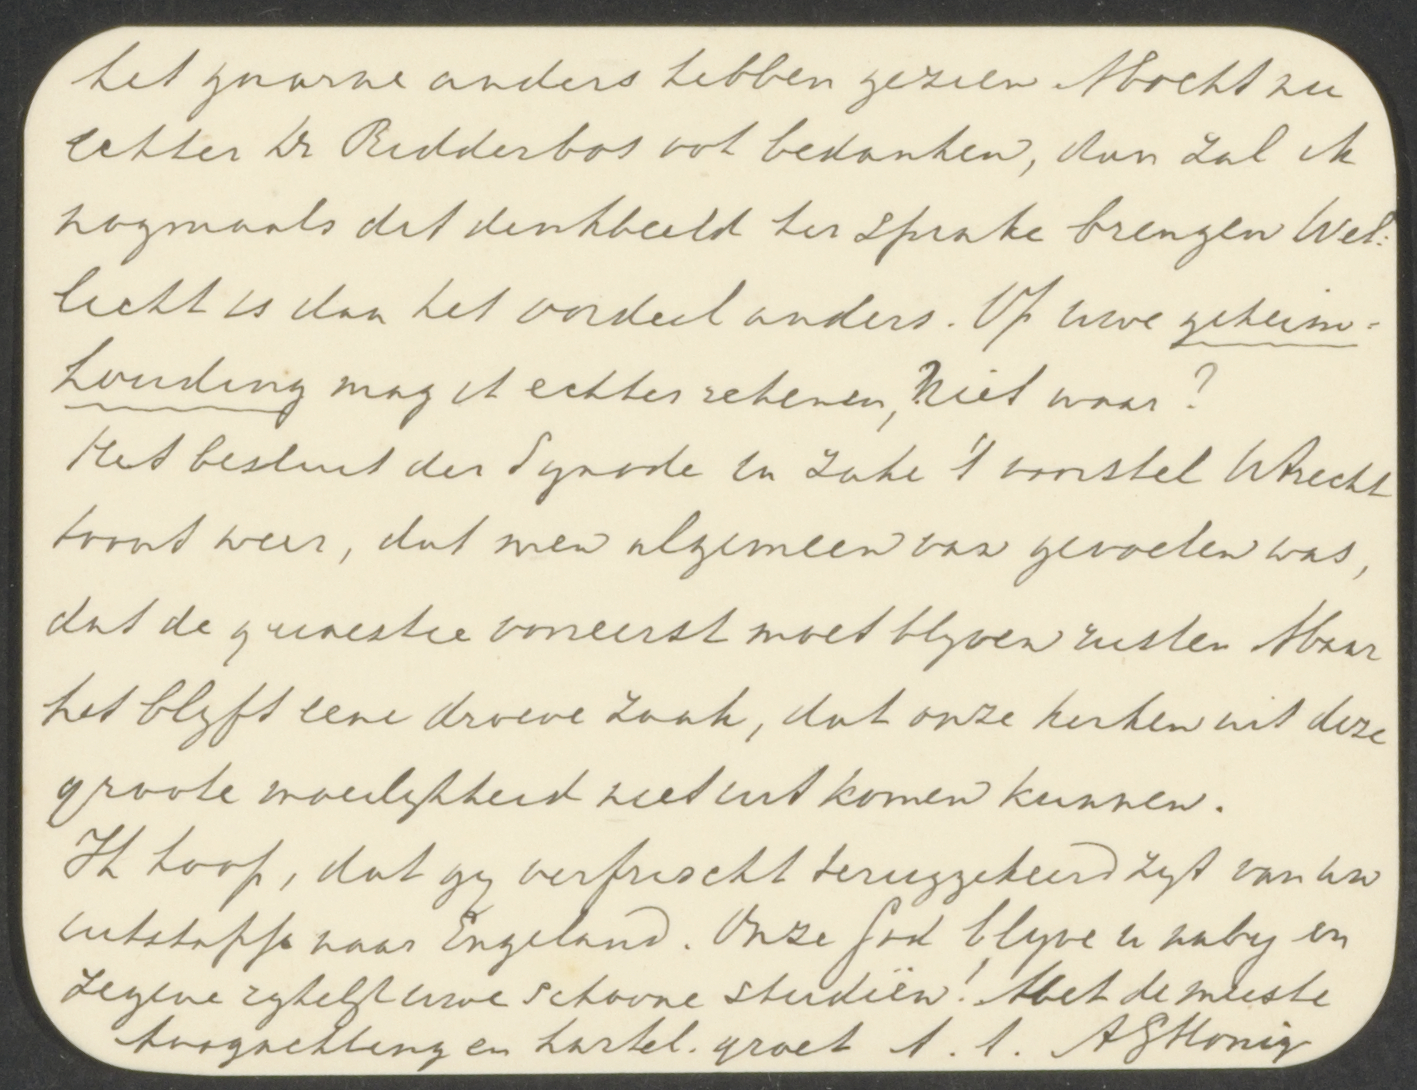 het gaarne anders hebben gezien Mocht nu
echter Dr Ridderbos ook bedanken, dan zal ik
nogmaals dit denkbeeld ter sprake brengen Wel:
licht is dan het oordeel anders. Op uwe geheim=
houding mag ik echter rekenen, Niet waar?
Het besluit der Synode in zake 't voorstel Utrecht
toont weer, dat men algemeen van gevoelen was,
dat de quaestie vooreerst moet blyven rusten Maar
het blyft eene droeve zaak, dat onze kerken uit deze
groote moeilykheid niet uit komen kunnen.
Ik hoop, dat gy verfrischt teruggekeerd zyt van uw
uitstapje naar Engeland. Onze God blyve u naby en
zegene rykelyk uwe schoone studiën! Met de meeste
hoogachting en hartel. groet t. t. AGHonig